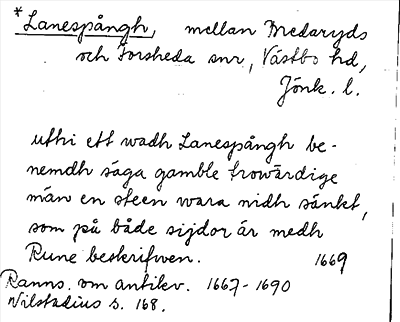 *Lanespångh, mellan Bredaryds
och Forsheda snr, Västbo hd,
Jönk. l.
uthi ett wadh Lanespångh be-
nemdh säga gamble trowärdige
män en steen wara nidh sänkt,
som på både sijdor är medh
Rune beskrifwen. 1669
Ranns. om antikv. 1667-1690
Nilstadius s. 168.